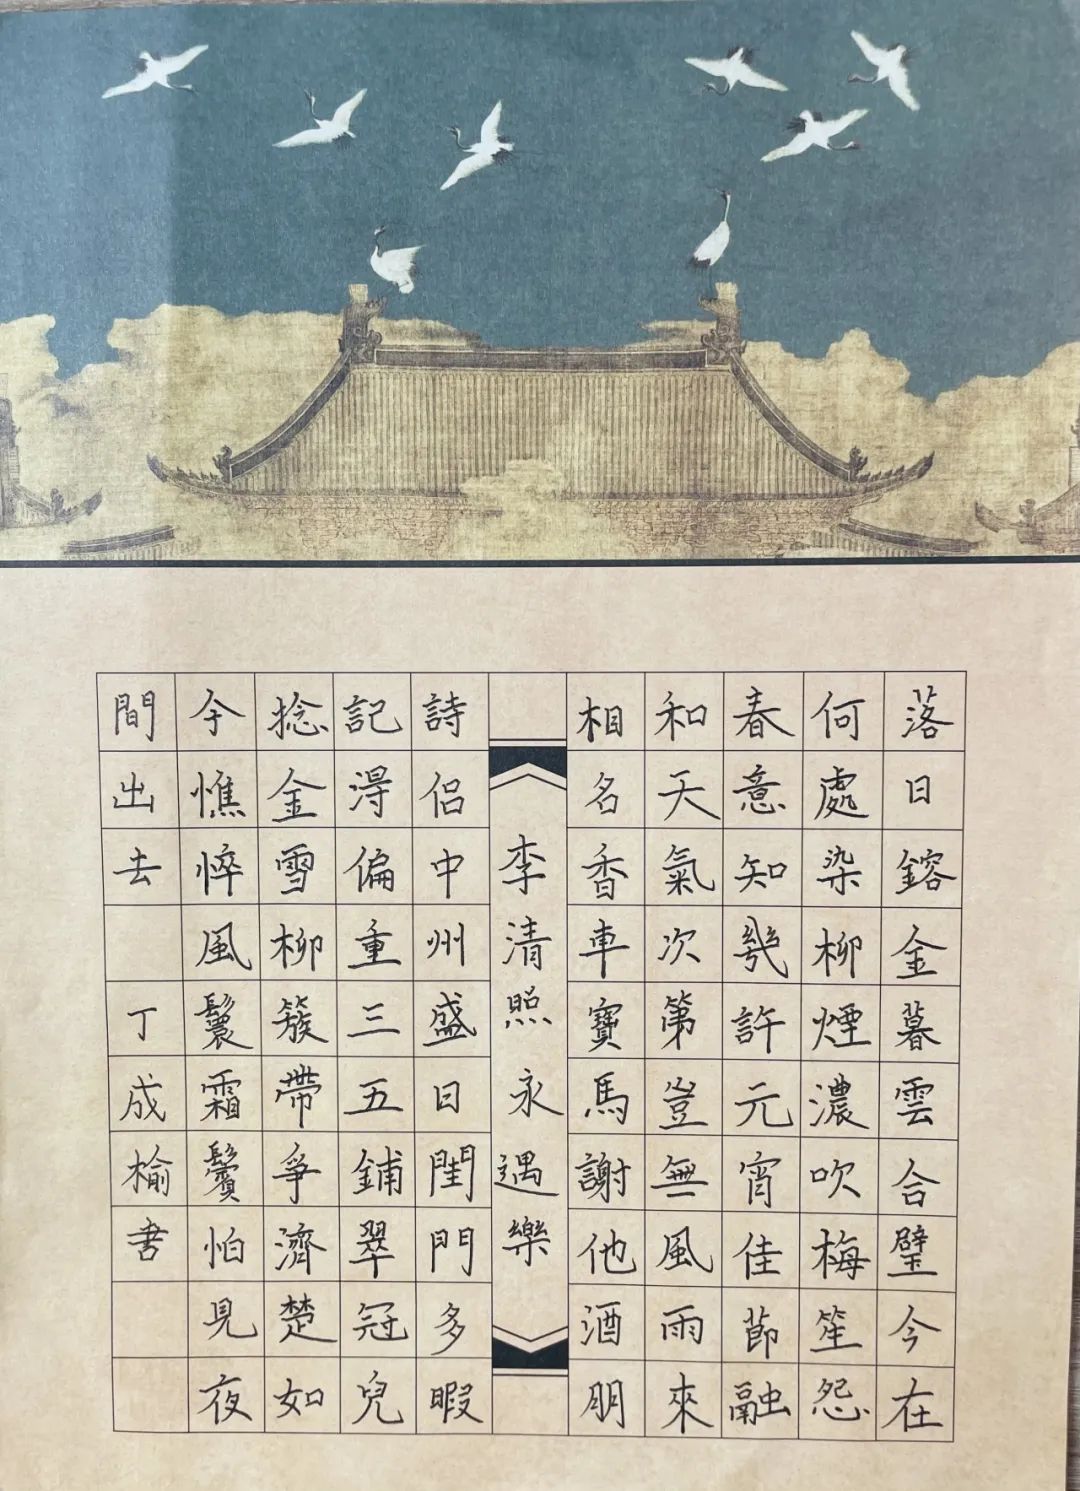 落日鎔金暮雲合璧今在
何處染柳煙濃吹梅笙怨
春意知幾許元宵佳節融
和天氣次第豈無風雨來
相名香車寶馬謝他酒朋
李清照永遇樂
詩侣中州盛日閨門多暇
記得偏重三五鋪翠冠兒
捻金雪柳簇帶爭濟楚如
今憔悴風鬟霜鬢怕見夜
間出去 丁成榆書